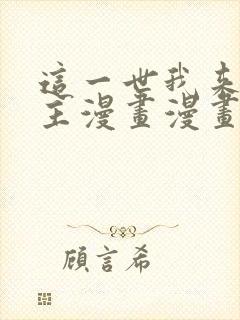 這一世我來
主漫畫漫畫
顧言希